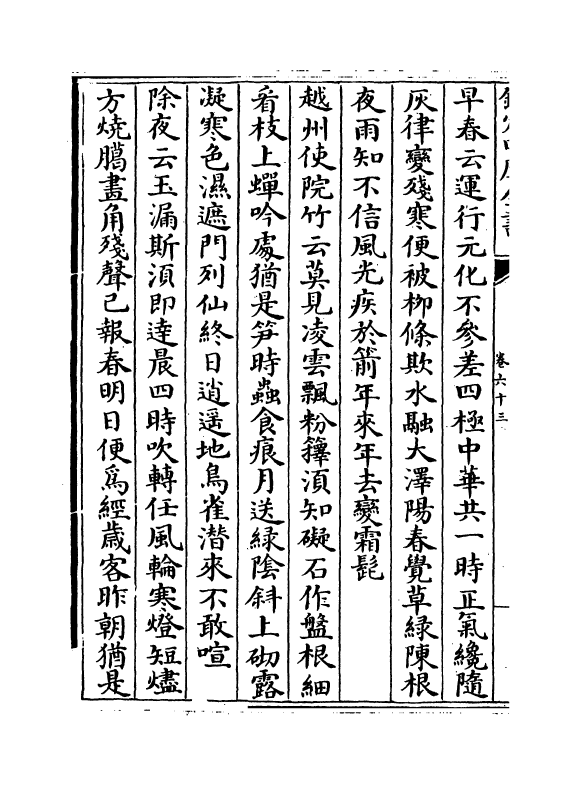 欽定四庫全書
卷六十三
早春云運行元化不參差四極中華共一時正氣纔隨
灰律變殘寒便被柳條欺水融大澤陽春覺草綠陳根
夜雨知不信風光疾於箭年來年去變霜髭
越州使院竹云莫見凌雲飄粉籜須知礙石作盤根細
看枝上蟬吟處猶是笋時蟲食痕月送緑陰斜上砌露
凝寒色濕遮門列仙終日逍遥地鳥雀潜來不敢喧
除夜云玉漏斯須即達晨四時吹轉任風輪寒燈短燼
方燒臈畫角殘聲已報春明日便為經歲客昨朝猶是